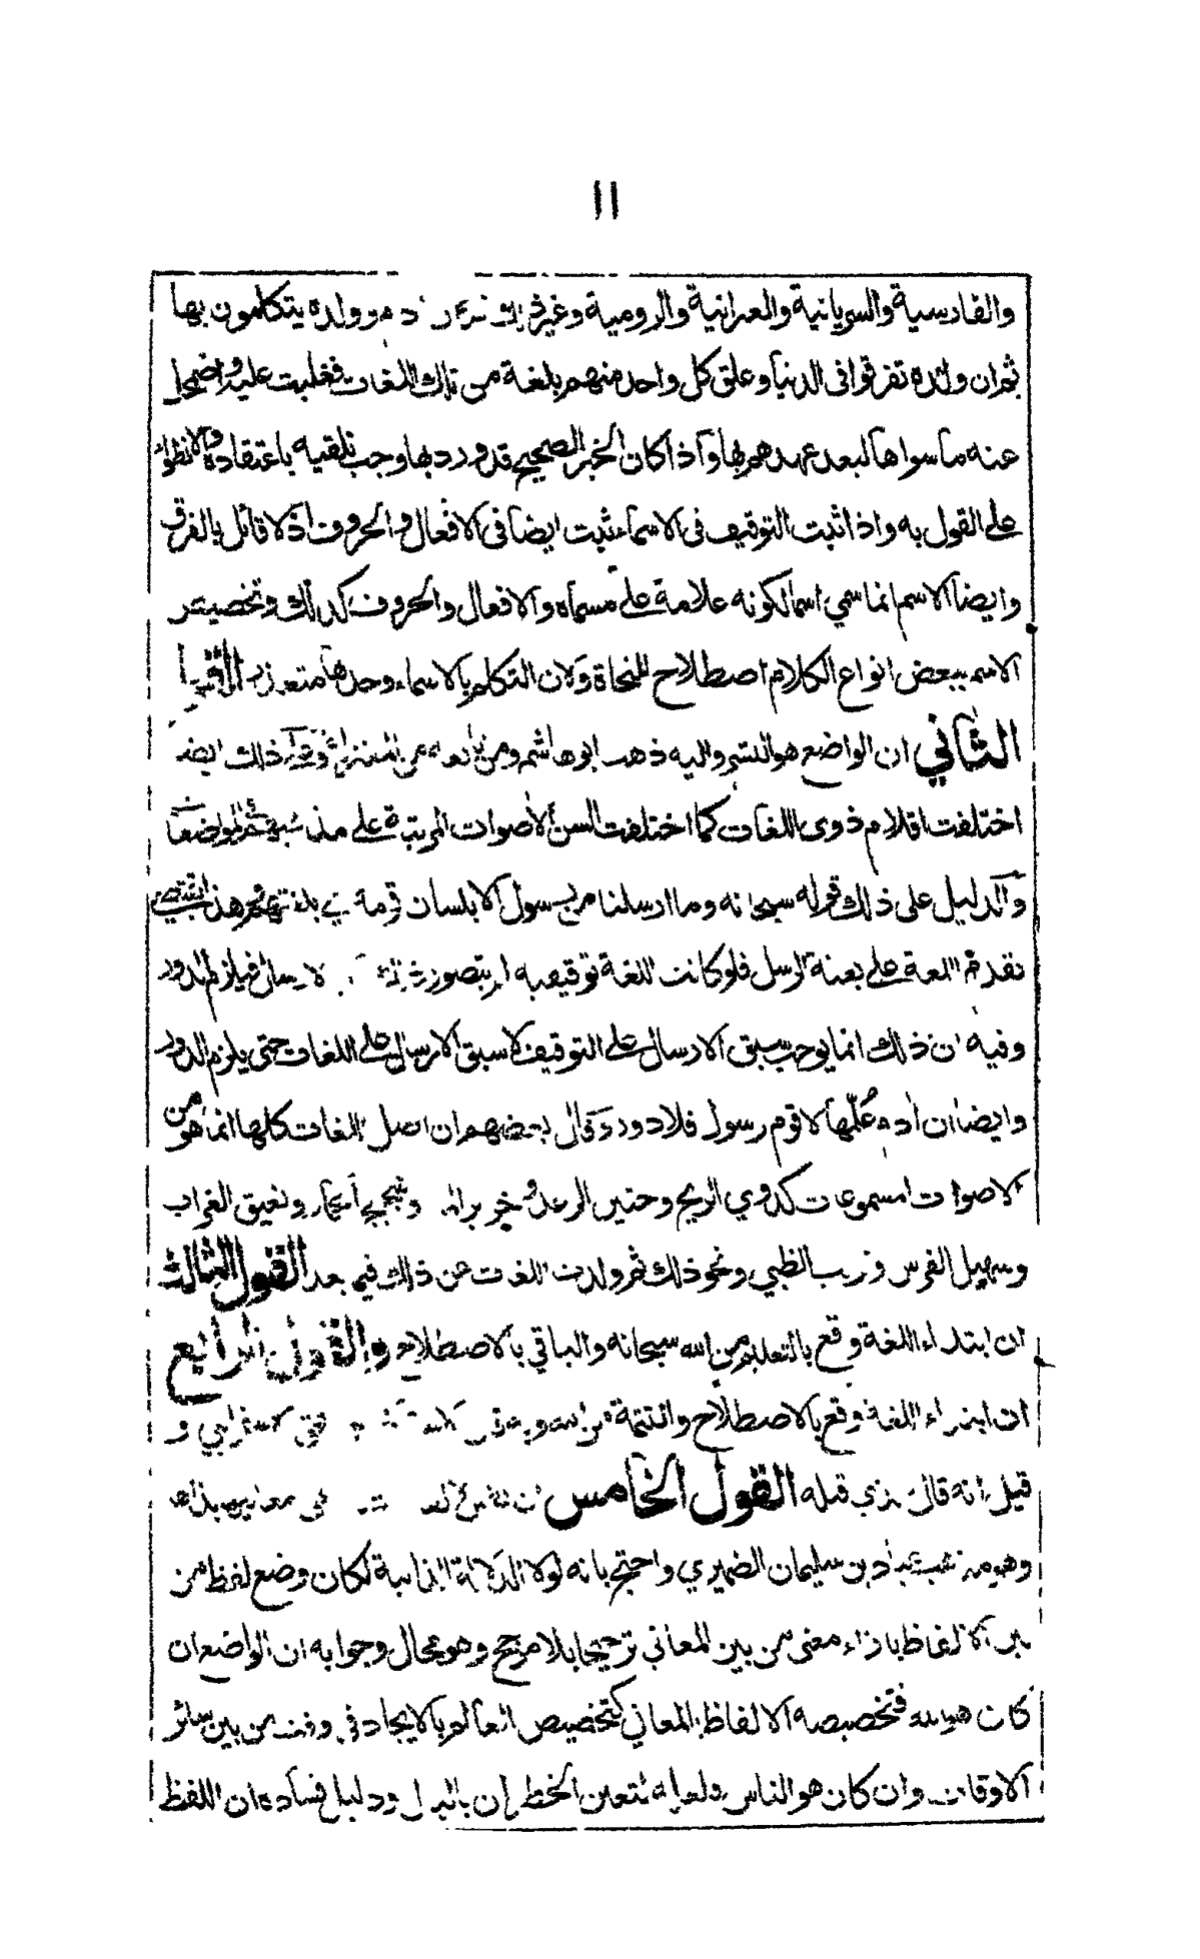 ١١
والفارسية والسريانية والعبرانية والرومية وغير وولده يتكلمون بها
ثم ان ولده تفرقوا في الدنيا وعلق كل واحد منهم بلغة من تلك اللغات فغلبت عليه واضمحل
عنه ما سواها لبعد عهدهم بها واذا كان الخبر الصحيح قد ورد بها وجب تلقيه باعتقاده والانطواء
على القول به واذا ثبت التوقيف في الاسماء ثبت ايضا في الافعال والحروف اذ لا قائل بالفرق
وايضا الاسم انما سمي اسما لكونه علامة على مسماه والافعال والحروف كذلك وتخصيص
الاسم ببعض انواع الكلام اصطلاح للنحاة ولان التكلم بالاسماء وحدها متعذر
الثاني ان الواضع هو البشر واليه ذهب ابو هاشم ومن تابعه من ذلك ايضا
اختلفت اقلام ذوي اللغات كما اختلفت السن الاصوات المرتبة على
والدليل على ذلك قوله سبحانه وما ارسلنا من رسول الا بلسان قومه
تقدم اللغة على بعثة الرسل فلو كانت اللغة توقيفية لم يتصور فيلزم الدور
وفيه ان ذلك انما يوجب سبق الارسال على التوقيف لا سبق الارسال على اللغات حتى يلزم الدور
وايضا ان ادم عُلّمها لا قوم رسول فلا دور وقال بعضهم ان اصل اللغات كلها انما هو من
الاصوات المسموعات كدوي الريح وحنين الرعد وخرير ونعيق الغراب
وصهيل الفرس ونزيب الظبي ونحو ذلك ثم ولدت اللغات عن ذلك فيما بعد القول الثالث
ان ابتداء اللغة وقع بالتعليم من الله سبحانه والباقي بالاصطلاح والقول الرابع
ان ابتداء اللغة وقع بالاصطلاح والتتمة من الله وبه قال و
قيل انه قال بالذي قبله القول الخامس
وهو مذهب عباد بن سليمان الضميري واحتج بانه لولا الدلالة الذاتية لكان وضع لفظ من
بين الالفاظ بازاء معنى من بين المعاني ترجيحا بلا مرجح وهو محال وجوابه ان الواضع ان
كان هو الله فتخصيصه الالفاظ بالمعاني كتخصيص العالم بالايجاد في وقت من بين سائر
الاوقات وان كان هو الناس ولعله لتعين الخطران بالبال ودليل فساده ان اللفظ